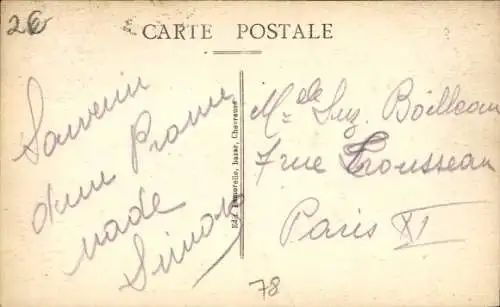 26
CARTE POSTALE
Souvenir
d'une Prome
nade
Simone
Edit. Lamorelle, bazar, Chevreuse
Mdlle Suz. Boilleau
7 rue Trousseau
Paris XI
78